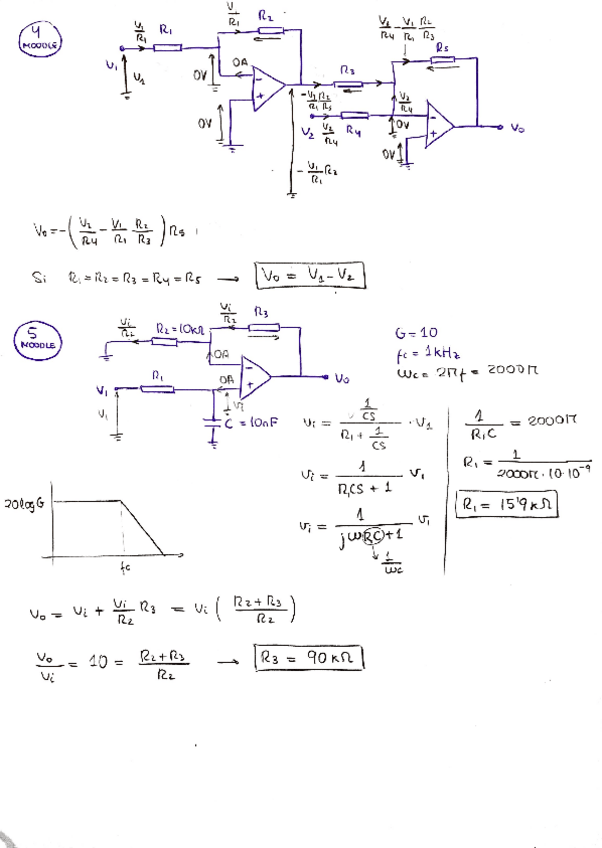 4
MOODLE
V1/R1 R1
V1/R1 R2
0A
V1
V1
0V
0V
- +
-V1/R1 R2/R3
R3
V2 V2/R4 R4
V2/R4
-V1/R1 R2
V2/R4 - V1/R1 R2/R3
R5
0V
0V
- +
Vo
Vo = -(V2/R4 - V1/R1 R2/R3) R5
Si R1 = R2 = R3 = R4 = R5 → Vo = V1 - V2
5
MOODLE
Vi/R2 R2 = 10kΩ
Vi/R2 R3
0A
0A
- +
Vo
V1 R1
V1
Vi
C = 10nF
G = 10
fc = 1kHz
ωc = 2πf = 2000π
Vi = (1/CS)/(R1 + 1/CS) · V1
Vi = 1/(R1CS + 1) V1
Vi = 1/(jωRC + 1) V1
1/ωc
1/R1C = 2000π
R1 = 1/(2000π · 10 · 10⁻⁹)
R1 = 15'9 kΩ
20logG
fc
Vo = Vi + Vi/R2 R3 = Vi ((R2 + R3)/R2)
Vo/Vi = 10 = (R2 + R3)/R2 → R3 = 90 kΩ